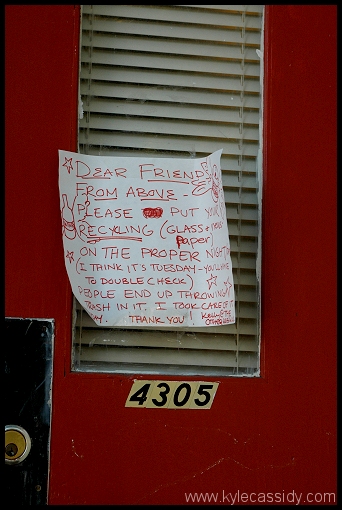 DEAR FRIENDS
FROM ABOVE -
PLEASE PUT YOUR
RECYCLING (GLASS +
Paper)
ON THE PROPER NIGHT
(I THINK IT'S TUESDAY - YOU'LL HAVE
TO DOUBLE CHECK)
PEOPLE END UP THROWING
TRASH IN IT. I TOOK CARE OF
THANK YOU!
4305
www.kylecassidy.com